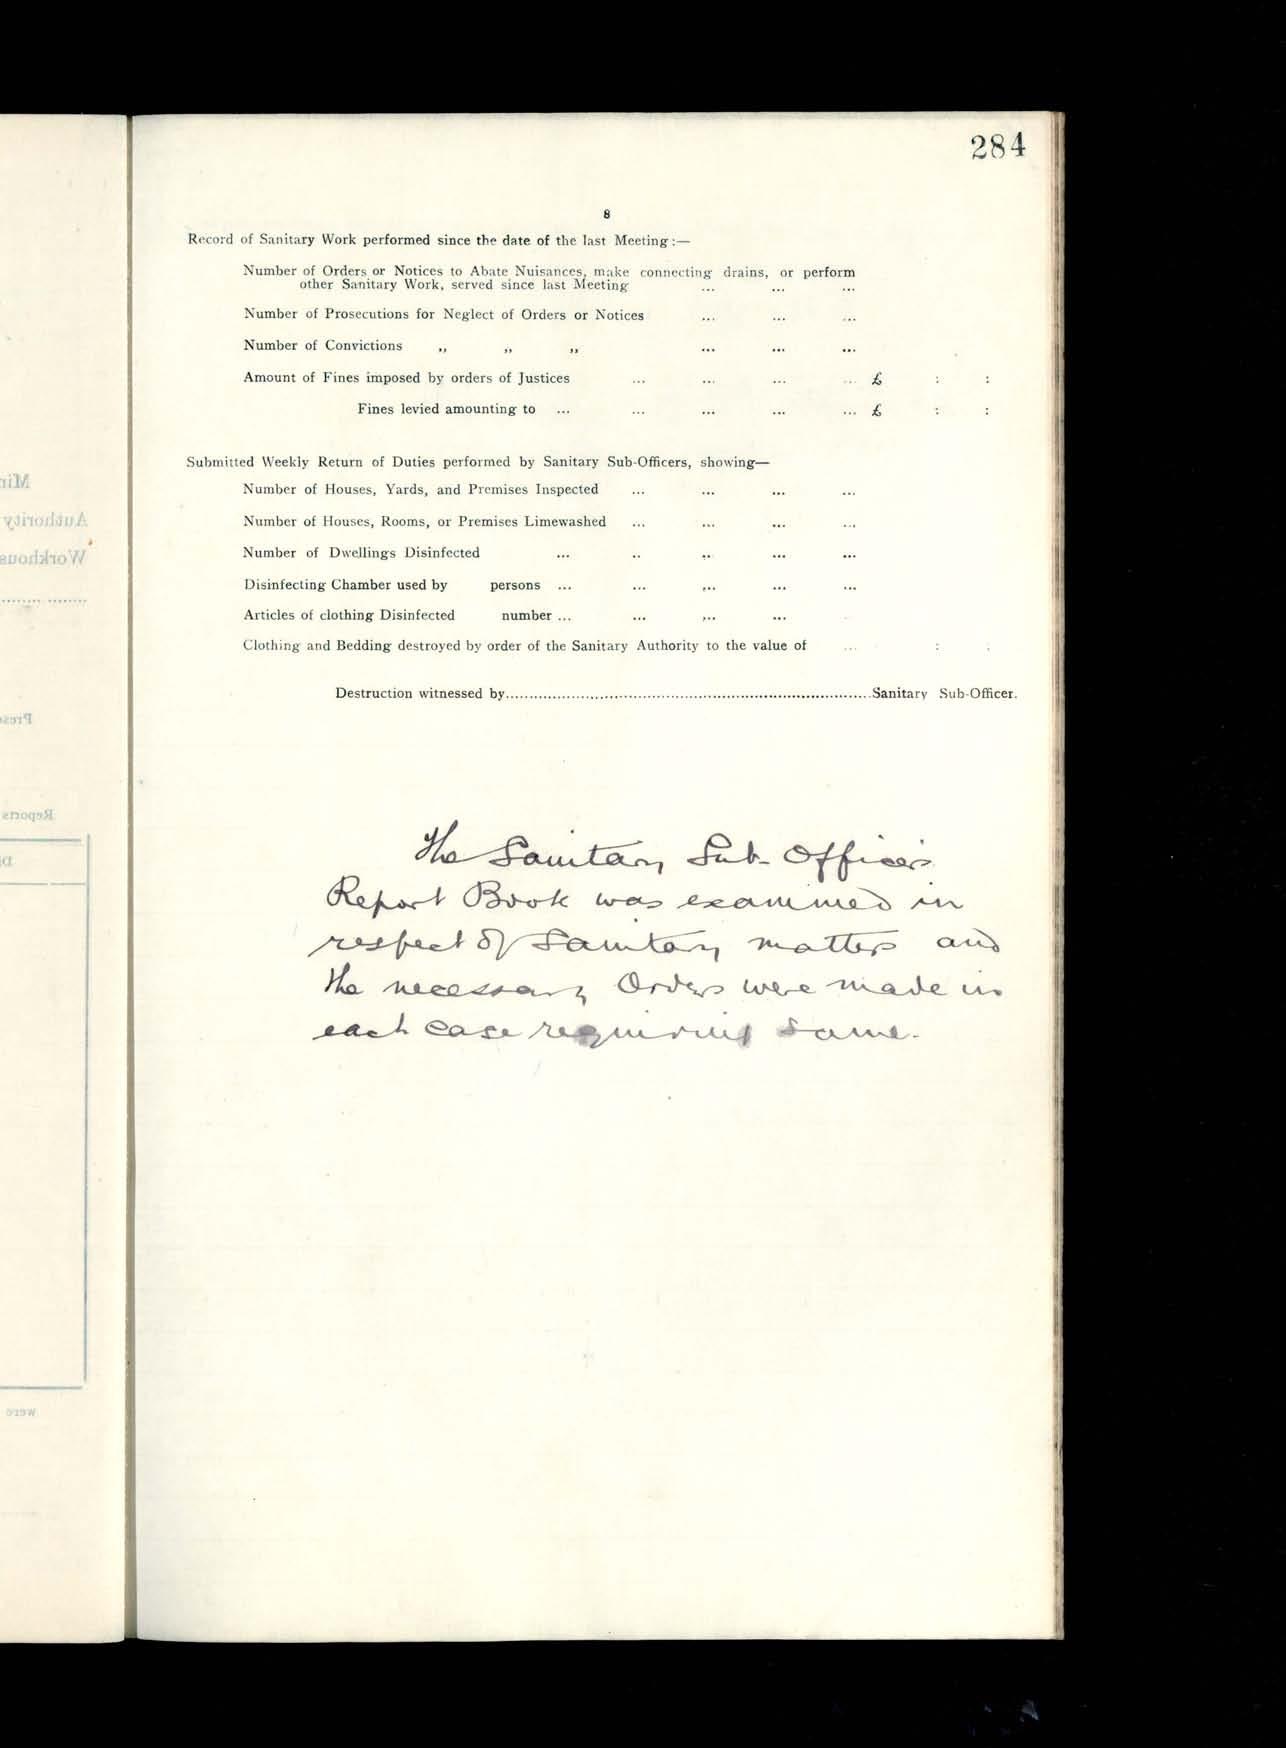 284
8
Record of Sanitary Work performed since the date of the last Meeting:—
Number of Orders or Notices to Abate Nuisances, make connecting drains, or perform
other Sanitary Work, served since last Meeting ... ... ...
Number of Prosecutions for Neglect of Orders or Notices ... ... ...
Number of Convictions ,, ,, ,, ... ... ...
Amount of Fines imposed by orders of Justices ... ... ... ... £ : :
Fines levied amounting to ... ... ... ... ... £ : :
Submitted Weekly Return of Duties performed by Sanitary Sub-Officers, showing—
Number of Houses, Yards, and Premises Inspected ... ... ... ...
Number of Houses, Rooms, or Premises Limewashed ... ... ... ...
Number of Dwellings Disinfected ... .. ... ... ...
Disinfecting Chamber used by persons ... ... ... ... ...
Articles of clothing Disinfected number ... ... ... ...
Clothing and Bedding destroyed by order of the Sanitary Authority to the value of ... : :
Destruction witnessed by........................................Sanitary Sub-Officer.
The Sanitary Sub-Officers
Report Book was examined in
respect of Sanitary matters and
the necessary Orders were made in
each case requiring same.